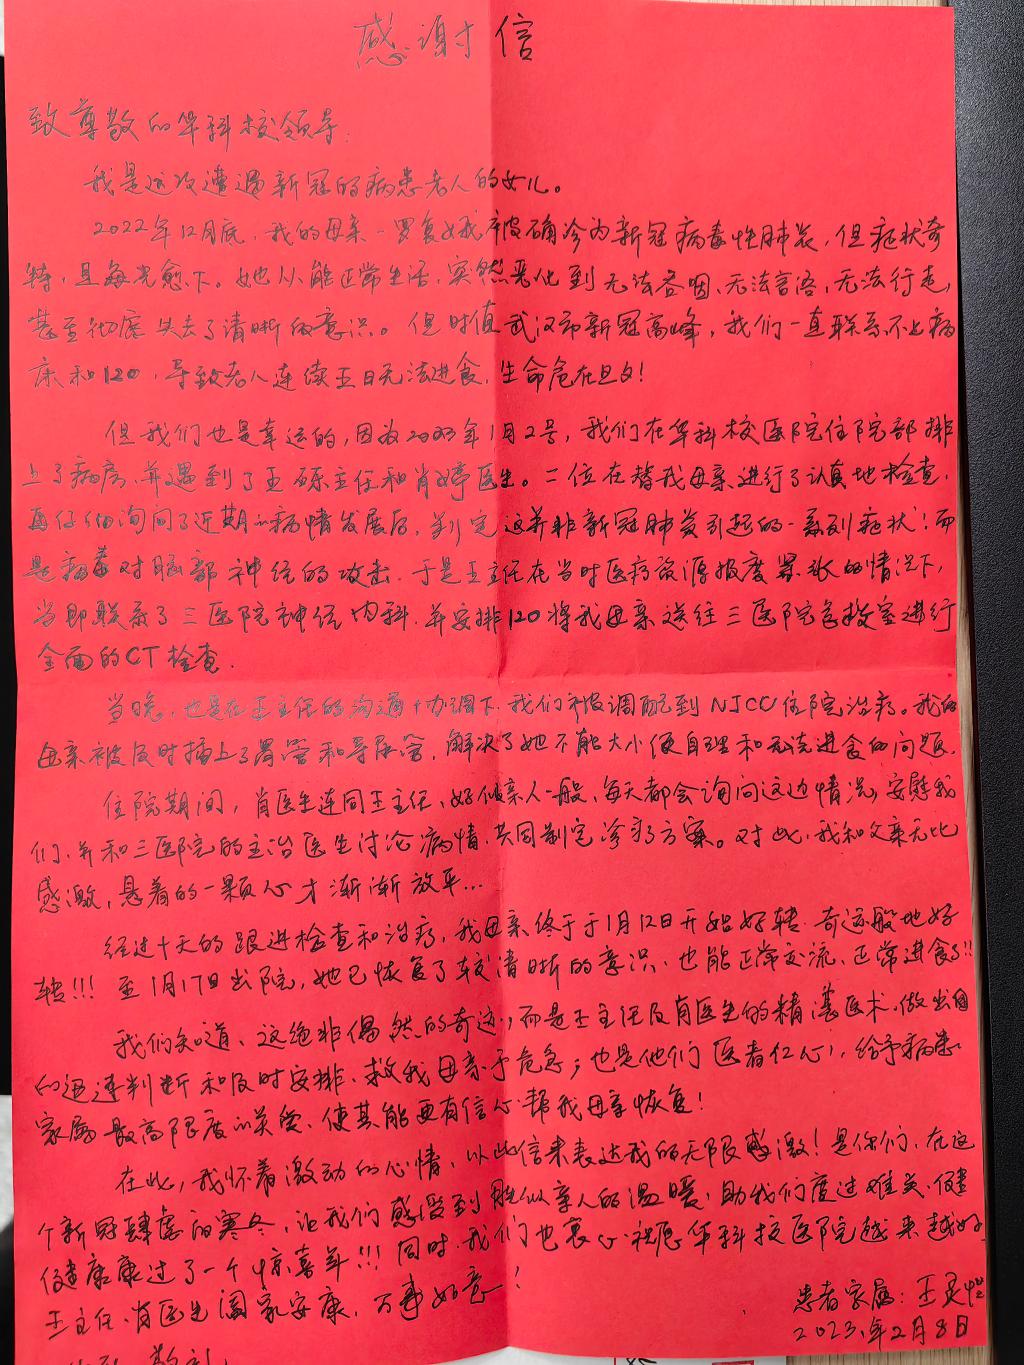 感谢信
致尊敬的华科校领导:
我是这次遭遇新冠的病患老人的女儿。
2022年12月底,我的母亲-罗复娥被确诊为新冠病毒性肺炎,但症状奇
特,且每况愈下。她从能正常生活,突然恶化到无法吞咽、无法言语,无法行走,
甚至彻底失去了清晰的意识。但时值武汉市新冠高峰,我们一直联系不上病
床和120,导致老人连续五日无法进食,生命危在旦夕!
但我们也是幸运的,因为2023年1月2号,我们在华科校医院住院部排
上了病房,并遇到了王砾主任和肖婷医生。二位在替我母亲进行了认真地检查,
再仔细询问了近期的病情发展后,判定这并非新冠肺炎引起的一系列症状!而
是病毒对脑部神经的攻击.于是王主任在当时医疗资源极度紧张的情况下,
当即联系了三医院神经内科.并安排120将我母亲送往三医院急救室进行
全面的CT检查.
当晚,也是在王主任的沟通+协调下.我们被调配到NICU住院治疗。我的
母亲被及时插上了胃管和导尿管,解决了她不能大小便自理和无法进食的问题.
住院期间,肖医生连同王主任、好似亲人一般,每天都会询问这边情况,安慰我
们.并和三医院的主治医生讨论病情.共同制定诊疗方案。对此,我和父亲无比
感激,悬着的一颗心才渐渐放平...
经过十天的跟进检查和治疗,我母亲终于于1月12日开始好转.奇迹般地好
转!!!至1月17日出院,她已恢复了较清晰的意识、也能正常交流、正常进食了!!
我们知道、这绝非偶然的奇迹,而是王主任及肖医生的精湛医术.做出的
的迅速判断和及时安排、救我母亲于危急;也是他们医者仁心,给予病患
家属最高限度的关爱、使其能更有信心帮我母亲恢复!
在此,我怀着激动的心情,以此信来表达我的无限感激!是你们,在这
个新冠肆虐的寒冬,让我们感受到胜似亲人的温暖,助我们度过难关,健
健康康过了一个惊喜年!!!同时.我们也衷心祝愿华科校医院越来越好.
王主任、肖医生阖家安康,万事如意!
患者家属:王灵
2023年2月8日
敬礼